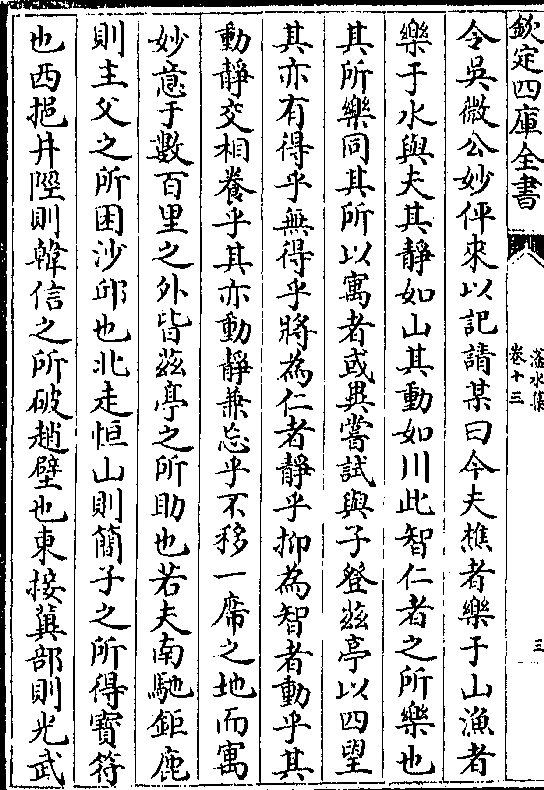 欽定四庫全書
滏水集
卷十三
三
令吳微公妙伻來以記請某曰今夫樵者樂于山漁者
樂于水與夫其靜如山其動如川此智仁者之所樂也
其所樂同其所以寓者或異嘗試與子登兹亭以四望
其亦有得乎無得乎將為仁者靜乎抑為智者動乎其
動靜交相養乎其亦動靜兼忘乎不移一席之地而寓
妙意于數百里之外皆兹亭之所助也若夫南馳鉅鹿
則主父之所困沙邱也北走恒山則簡子之所得寶符
也西挹井陘則韓信之所破趙壁也東接蓂部則光武